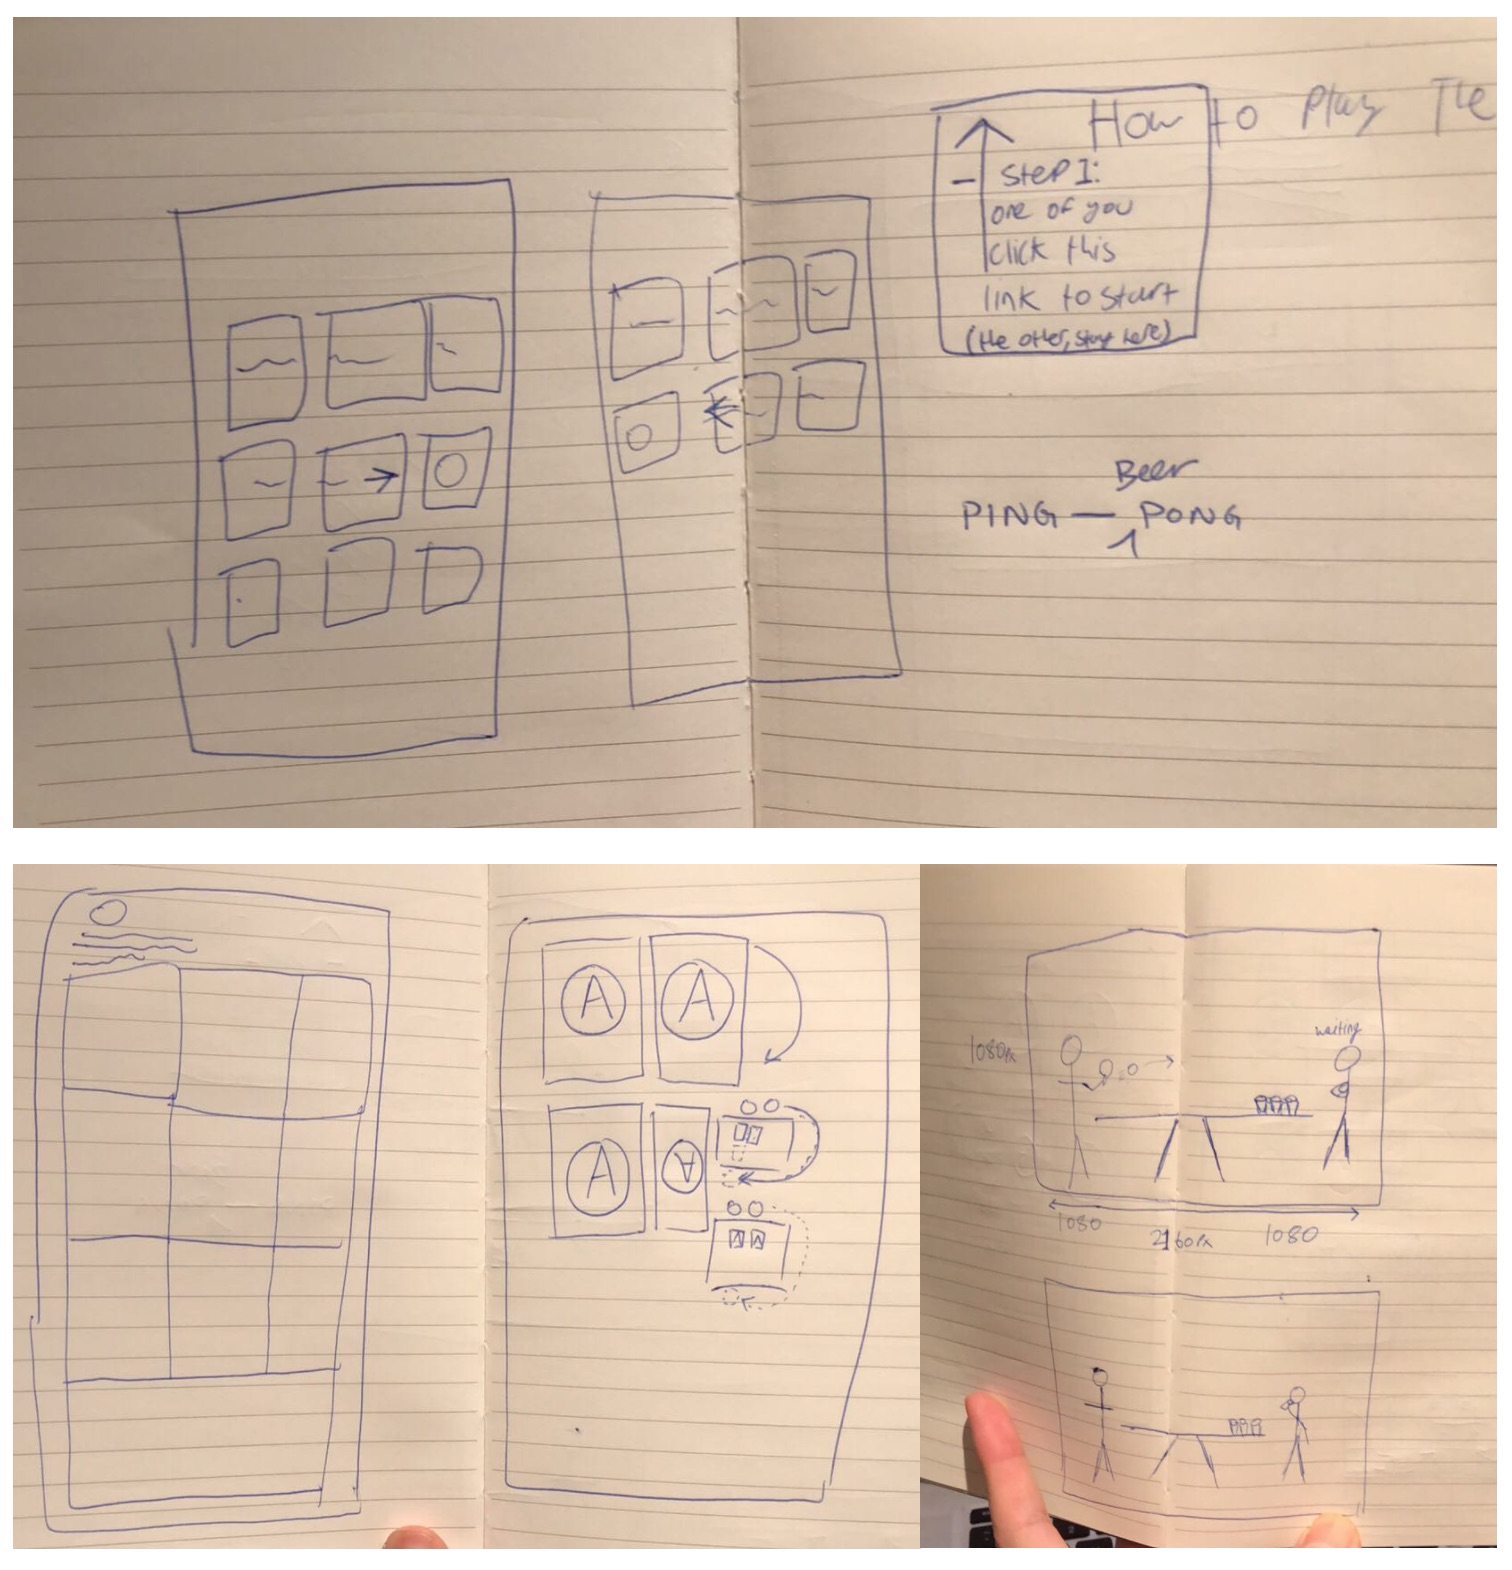 How to Play The
Step I:
one of you
click this
link to start
(the other, stay here)
Beer
PING — PONG
A A
A A
waiting
1080px
1080 2160px 1080